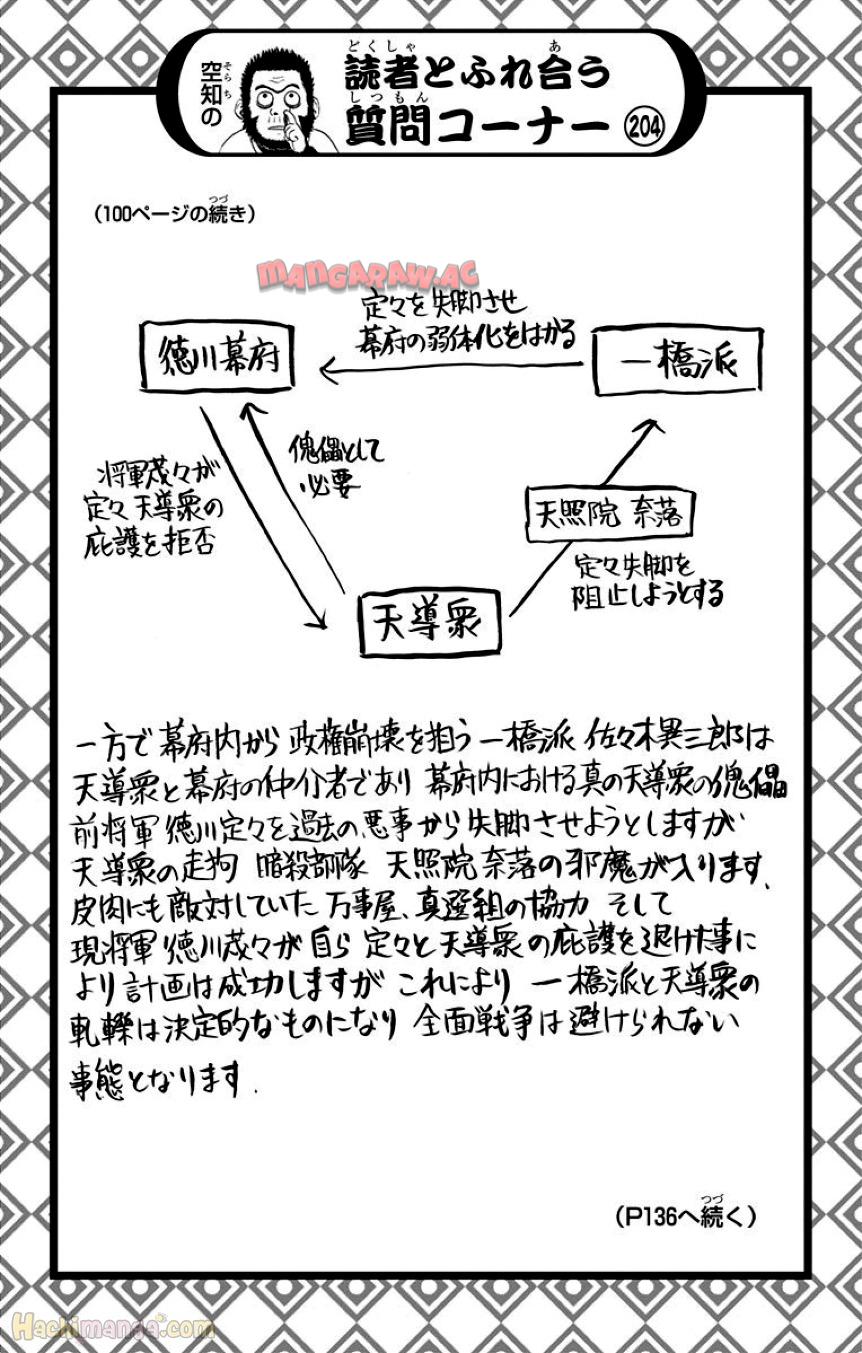 空知の
読者とふれ合う
質問コーナー 204
(100ページの続き)
MANGARAW.AC
定々を失脚させ
幕府の弱体化をはかる
徳川幕府
一橋派
傀儡として
必要
将軍茂々が
定々天導衆の
庇護を拒否
天照院 奈落
定々失脚を
阻止しようとする
天導衆
一方で幕府内から 政権崩壊を狙う 一橋派 佐々木異三郎は
天導衆と幕府の仲介者であり 幕府内における真の天導衆の傀儡
前将軍 徳川定々を過去の悪事から失脚させようとしますが
天導衆の走狗 暗殺部隊 天照院奈落の邪魔が入ります.
皮肉にも敵対していた 万事屋、真選組の協力 そして
現将軍 徳川茂々が 自ら 定々と天導衆の庇護を退けた事に
より 計画は成功しますが これにより 一橋派と天導衆の
軋轢は決定的なものになり 全面戦争は避けられない
事態となります.
(P136へ続く)
Hachimanga.com